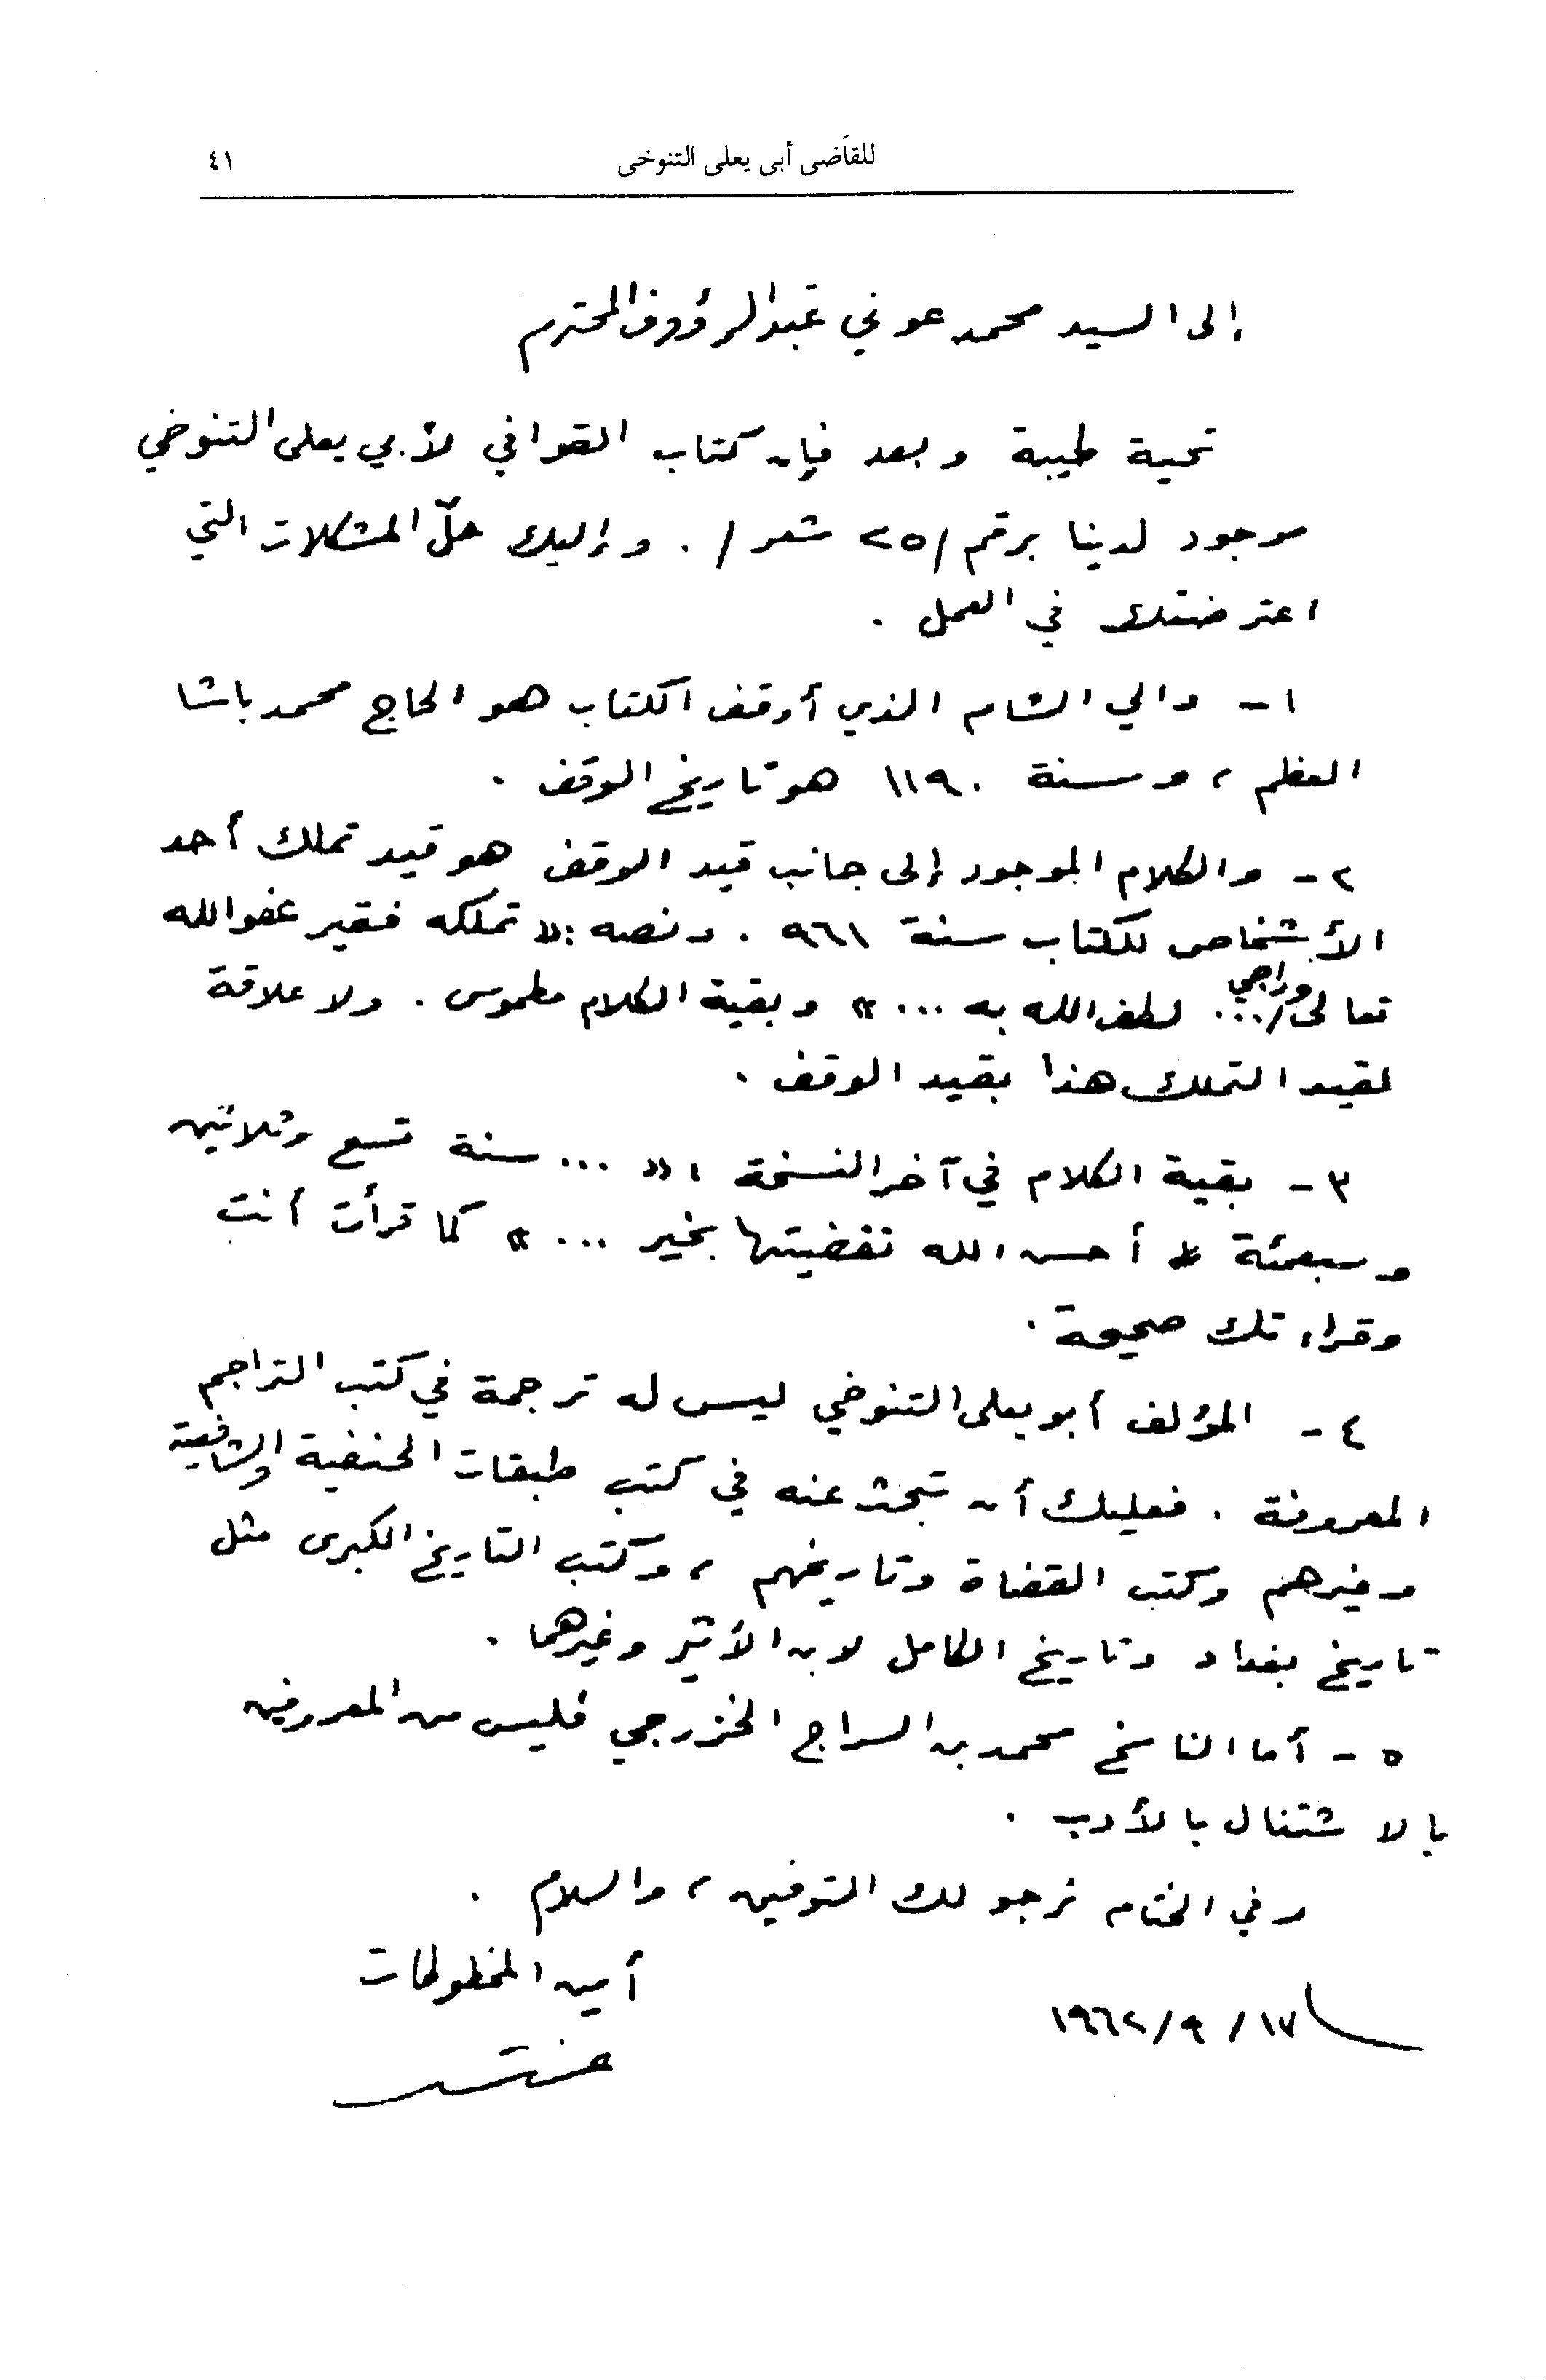 للقاضى أبى يعلى التنوخى ٤١
إلى السيد محمد عوني عبد الرؤوف المحترم
تحية طيبة وبعد فإن كتاب القوافي لأبي يعلى التنوخي
موجود لدينا برقم /٢٥ شعر/ . وإليك حلّ المشكلات التي
اعترضتك في العمل .
١ - والي الشام الذي أوقف الكتاب هو الحاج محمد باشا
العظم ، وسنة ١١٩٠ هو تاريخ الوقف .
٢ - والكلام الموجود إلى جانب قيد الوقف هو قيد تملك أحد
الأشخاص للكتاب سنة ٩٦١ . ونصه : « تملكه فقير عفو الله
تعالى وراجي ... لطف الله به ... » وبقية الكلام مطموس . ولا علاقة
لقيد التملك هذا بقيد الوقف .
٣ - بقية الكلام في آخر النسخة ، « ... سنة تسع وثلاثين
وسبعمئة أحسن الله تقضيتها بخير ... » كما قرأت أنت
وقراءتك صحيحة .
٤ - المؤلف أبو يعلى التنوخي ليس له ترجمة في كتب التراجم
المعروفة . فعليك أن تبحث عنه في كتب طبقات الحنفية والشافعية
وغيرهم وكتب القضاة وتاريخهم ، وكتب التاريخ الكبرى مثل
تاريخ بغداد وتاريخ الكامل لابن الأثير وغيرهما .
٥ - أما الناسخ محمد بن السراج الخزرجي فليس من المعروفين
بالاشتغال بالأدب .
وفي الختام نرجو لك التوفيق ، والسلام .
أمين المخطوطات
١٧ / ٩ / ١٩٦٢